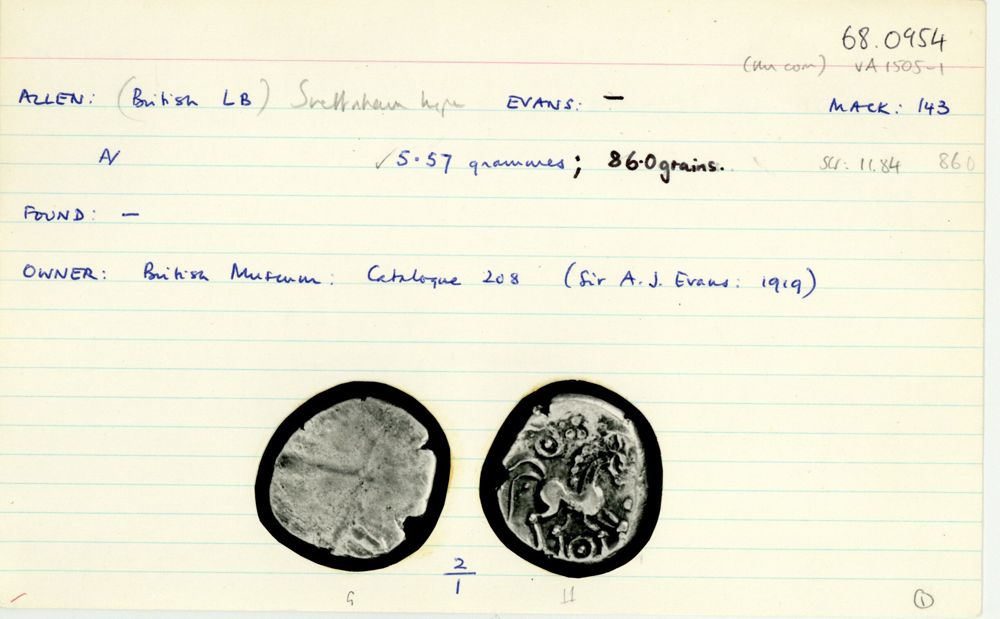 68.0954
(nu com) VA 1505-1
ALLEN: (British LB) EVANS: — MACK: 143
N 5.57 grammes; 86.0 grains. Scr: 11.84 86.0
FOUND: —
OWNER: British Museum: Catalogue 208 (Sir A.J. Evans: 1919)
2
1
G H
1